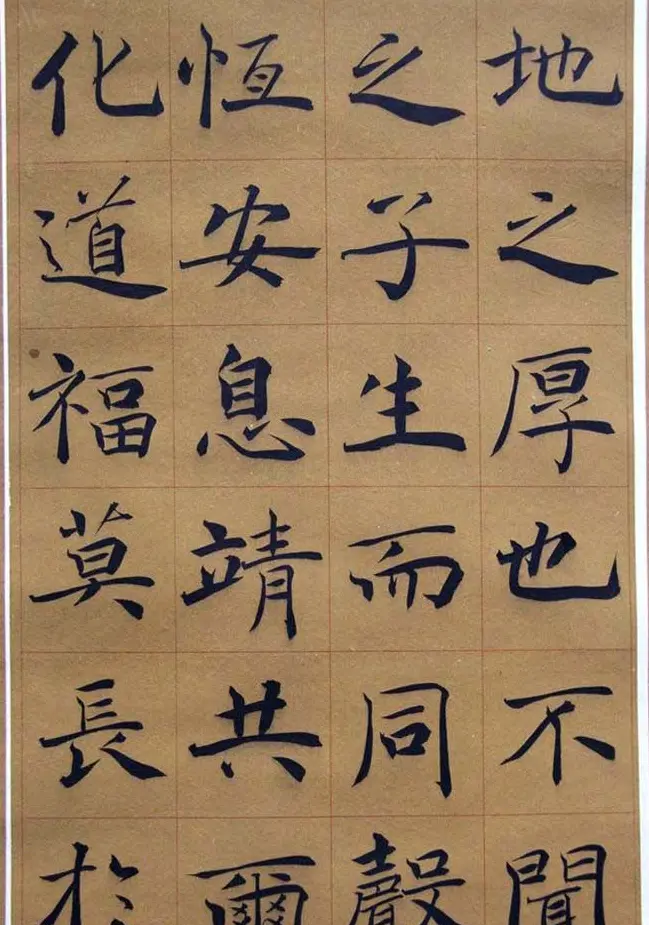 地之厚也不聞
之子生而同聲
恆安息靖共爾
化道福莫長於